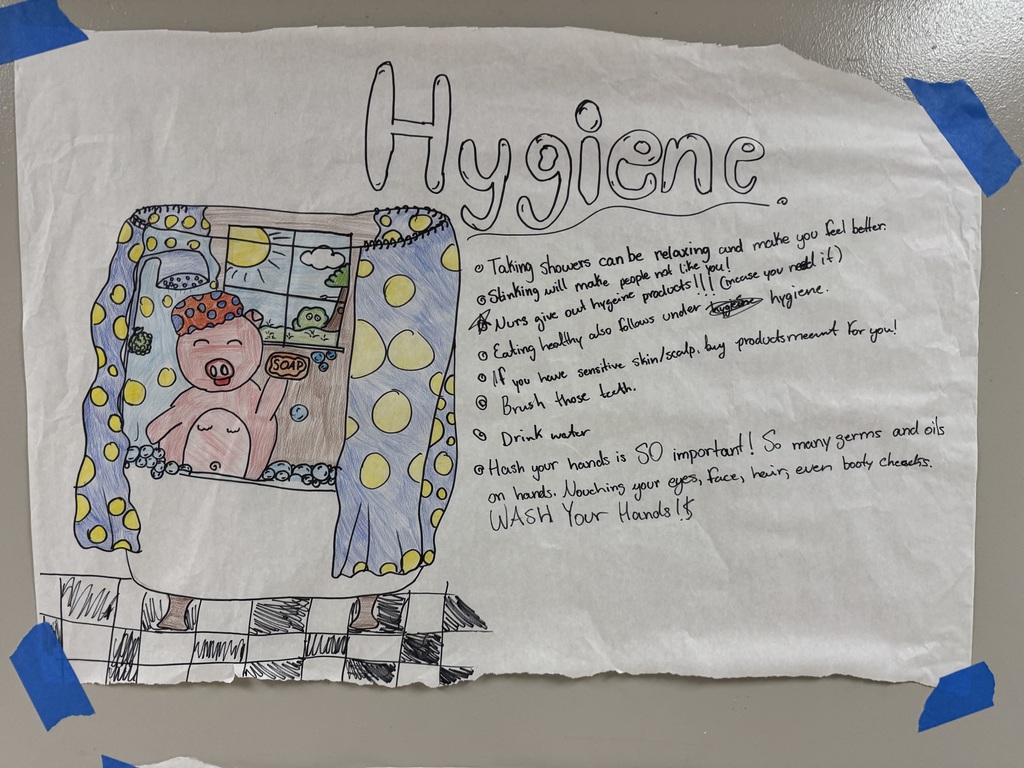 Hygiene.
Taking showers can be relaxing and make you feel better.
Stinking will make people not like you!
Nurs give out hygeine products!!! (incase you need it)
Eating healthy also follows under hygiene.
If you have sensitive skin/scalp. buy products meant for you!
Brush those teeth.
Drink water
Hash your hands is SO important! So many germs and oils
on hands. Nouching your eyes, face, hair, even booty cheecks.
WASH Your Hands!
SOAP